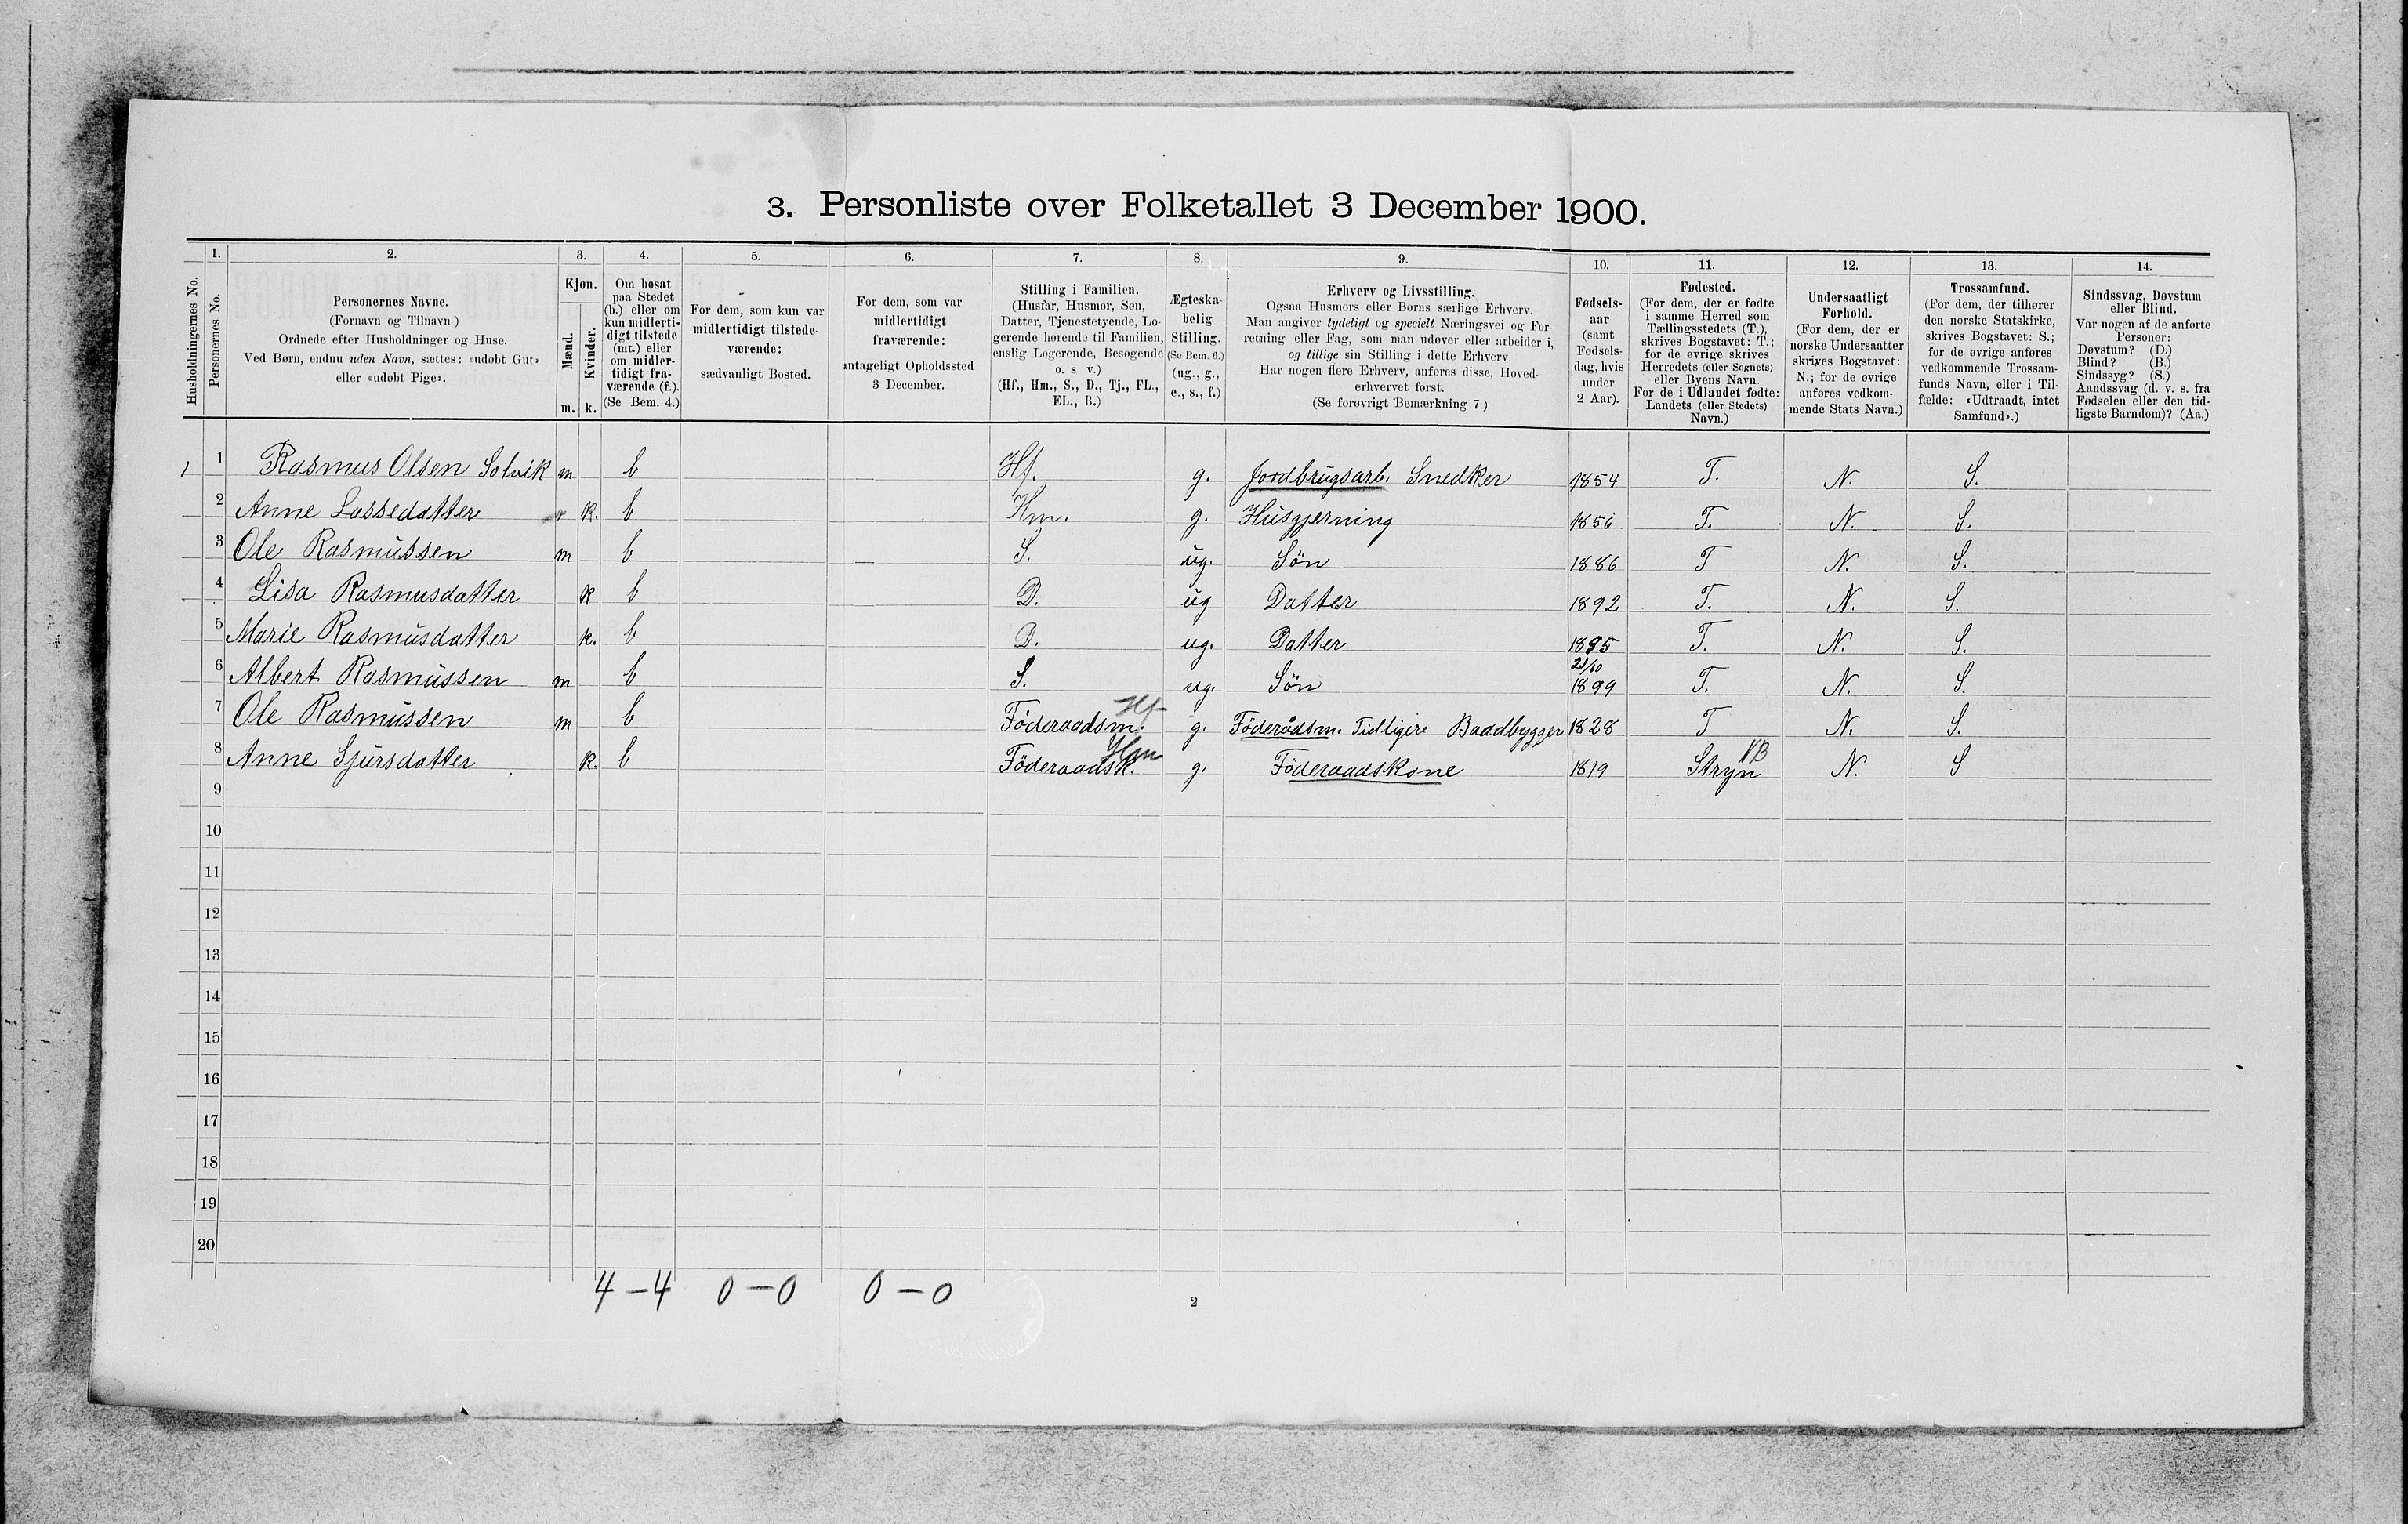 3. Personliste over Folketallet 3 December 1900.
Husholdningernes No.
1.
Personernes No.
2.
Personernes Navne.
(Fornavn og Tilnavn )
Ordnede efter Husholdninger og Huse.
Ved Børn, endnu uden Navn, sættes: «udøbt Gut»
eller «udøbt Pige».
3.
Kjøn.
Mænd.
Kvinder.
m. k.
4.
Om bosat
paa Stedet
(b.) eller om
kun midlerti-
digt tilstede
(mt.) eller
om midler-
tidigt fra-
værende (f.).
(Se Bem. 4.)
5.
For dem, som kun var
midlertidigt tilstede-
værende:
sædvanligt Bosted.
6.
For dem, som var
midlertidigt
fraværende:
antageligt Opholdssted
3 December.
7.
Stilling i Familien.
(Husfar, Husmor, Søn,
Datter, Tjenestetyende, Lo-
gerende hørende til Familien,
enslig Logerende, Besøgende
o. s v.)
(Hf., Hm., S., D., Tj., FL.,
EL., B.)
8.
Ægteska-
belig
Stilling.
(Se Bem. 6.)
(ug., g.,
e., s., f.)
9.
Erhverv og Livsstilling.
Ogsaa Husmors eller Børns særlige Erhverv.
Man angiver tydeligt og specielt Næringsvei og For-
retning eller Fag, som man udøver eller arbeider i,
og tillige sin Stilling i dette Erhverv.
Har nogen flere Erhverv, anføres disse, Hoved-
erhvervet først.
(Se forøvrigt Bemærkning 7.)
10.
Fødsels-
aar
(samt
Fødsels-
dag, hvis
under
2 Aar).
11.
Fødested.
(For dem, der er fødte
i samme Herred som
Tællingsstedets (T.),
skrives Bogstavet: T.;
for de øvrige skrives
Herredets (eller Sognets)
eller Byens Navn.
For de i Udlandet fødte:
Landets (eller Stedets)
Navn.)
12.
Undersaatligt
Forhold.
(For dem, der er
norske Undersaatter
skrives Bogstavet:
N.; for de øvrige
anføres vedkom-
mende Stats Navn.)
13.
Trossamfund.
(For dem, der tilhører
den norske Statskirke,
skrives Bogstavet: S.;
for de øvrige anføres
vedkommende Trossam-
funds Navn, eller i Til-
fælde: «Udtraadt, intet
Samfund».)
14.
Sindssvag, Døvstum
eller Blind.
Var nogen af de anførte
Personer:
Døvstum? (D.)
Blind? (B.)
Sindssyg? (S.)
Aandssvag (d. v. s. fra
Fødselen eller den tid-
ligste Barndom)? (Aa.)
1 1 Rasmus Olsen Solvik m b Hf. g. Jordbrugsarb. Snedker 1854 T. N. S.
2 Anne Lassedatter k. b Hm. g. Husgjerning 1856 T. N. S.
3 Ole Rasmussen m b S. ug. Søn 1886 T N. S.
4 Lisa Rasmusdatter k b D. ug Datter 1892 T. N. S.
5 Marie Rasmusdatter k. b D. ug. Datter 1895 T. N. S.
6 Albert Rasmussen m b S. ug. Søn 21/10 1899 T. N. S.
7 Ole Rasmussen m b Föderaadsm. Hf g. Föderådsm. Tidligere Baadbygger 1828 T N. S.
8 Anne Sjursdatter k. b Föderaadsk. Hm g. Föderaadskone 1819 Stryn NB N. S
9
10
11
12
13
14
15
16
17
18
19
20
4 – 4 0 – 0 0 – 0
2